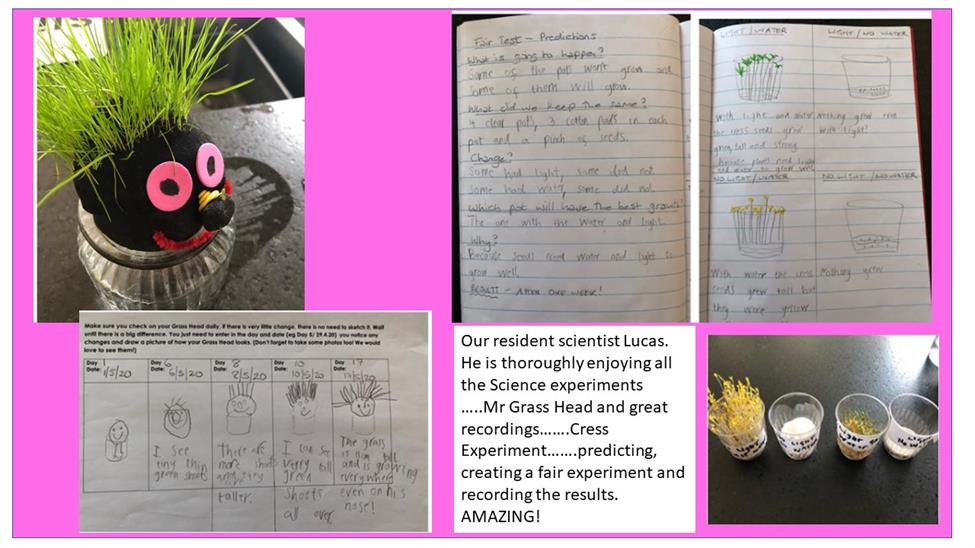 Fair Test - Predictions
What is going to happen?
Some of the pots won't grow and
some of them will grow.
What did we keep the same?
4 clear pots, 3 cotton pads in each
pot and a pinch of seeds.
Change?
Some had light, some did not.
Some had water, some did not.
Which pot will have the best growth
The one with the water and light.
Why?
Because seeds need water and light to
grow well.
Result - After one week!
LIGHT/WATER
With light and water
the cress seeds grow
green, tall and strong
Because plants need
and water to grow well
LIGHT/NO WATER
Nothing grew
with light!
NO LIGHT/WATER
With water the cress
seeds grew tall but
they were yellow
NO LIGHT/NO WATER
Nothing grew
Make sure you check on your Grass Head daily. If there is very little change, there is no need to sketch it. Wait
until there is a big difference. You just need to enter in the day and date (eg Day 5/ 29.4.20) you notice any
changes and draw a picture of how your Grass Head looks. (Don't forget to take some photos too! We would
love to see them!)
Day 1
Date: 1/5/20
Day 6
Date: 6/5/20
I see
tiny thin
green shoots
Day 8
Date: 8/5/20
There are
more shoots
and they
are
taller.
Day 10
Date: 10/5/20
I can see
very tall
green
shoots
all over
Day 17
Date: 17/5/20
The grass
is
and is growing
everywhere
even on his
nose!
Our resident scientist Lucas.
He is thoroughly enjoying all
the Science experiments
.....Mr Grass Head and great
recordings.......Cress
Experiment.......predicting,
creating a fair experiment and
recording the results.
AMAZING!